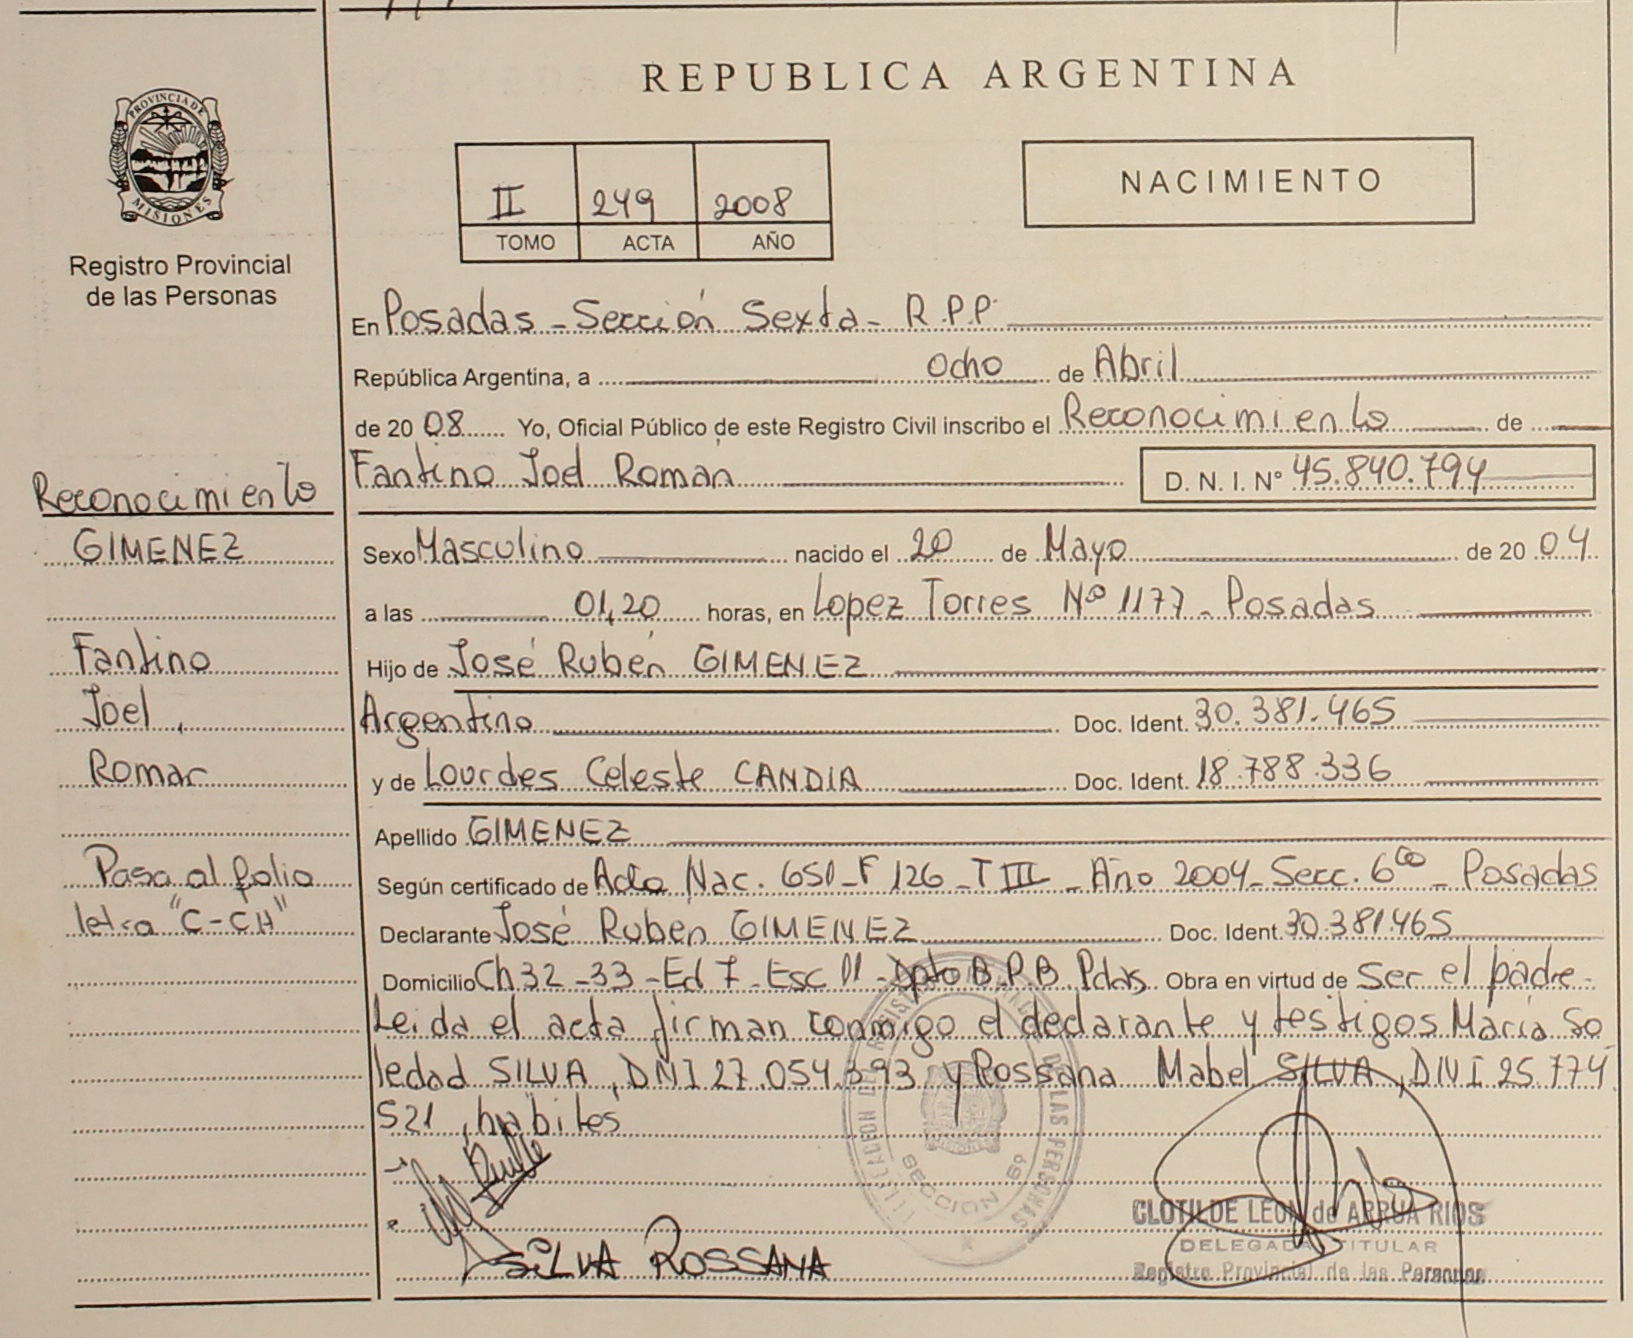 REPUBLICA ARGENTINA
PROVINCIA DE
MISIONES
Registro Provincial
de las Personas
II 249 2008
TOMO ACTA AÑO
NACIMIENTO
En Posadas - Sección Sexta - R.P.P.
República Argentina, a Ocho de Abril
de 20 08 Yo, Oficial Público de este Registro Civil inscribo el Reconocimiento de
Fantino Joel Román
D. N. I. Nº 45.840.794
Reconocimiento
GIMENEZ
Fantino
Joel
Roman
Pasa al folio
letra "C-CH"
Sexo Masculino nacido el 20 de Mayo de 20 04
a las 01,20 horas, en Lopez Torres Nº 1177 - Posadas
Hijo de José Rubén GIMENEZ
Argentino Doc. Ident. 30.381.465
y de Lourdes Celeste CANDIA Doc. Ident. 18.788.336
Apellido GIMENEZ
Según certificado de Acta Nac. 650 - F 126 - T III - Año 2004 - Secc. 6ta - Posadas
Declarante José Rubén GIMENEZ Doc. Ident. 30.381.465
Domicilio Ch 32-33 - Ed 7 - Esc 11 - Dpto B P.B. Pdas. Obra en virtud de Ser el padre.
Leida el acta firman conmigo el declarante y testigos María So
ledad SILVA, DNI 27.054.393 y Rossana Mabel SILVA, DNI 25.774
521, hábiles
SILVA ROSSANA
DE LAS PERSONAS
SECCION 6º
CLOTILDE LEON de ARRUA RIOS
DELEGADA TITULAR
Registro Provincial de las Personas